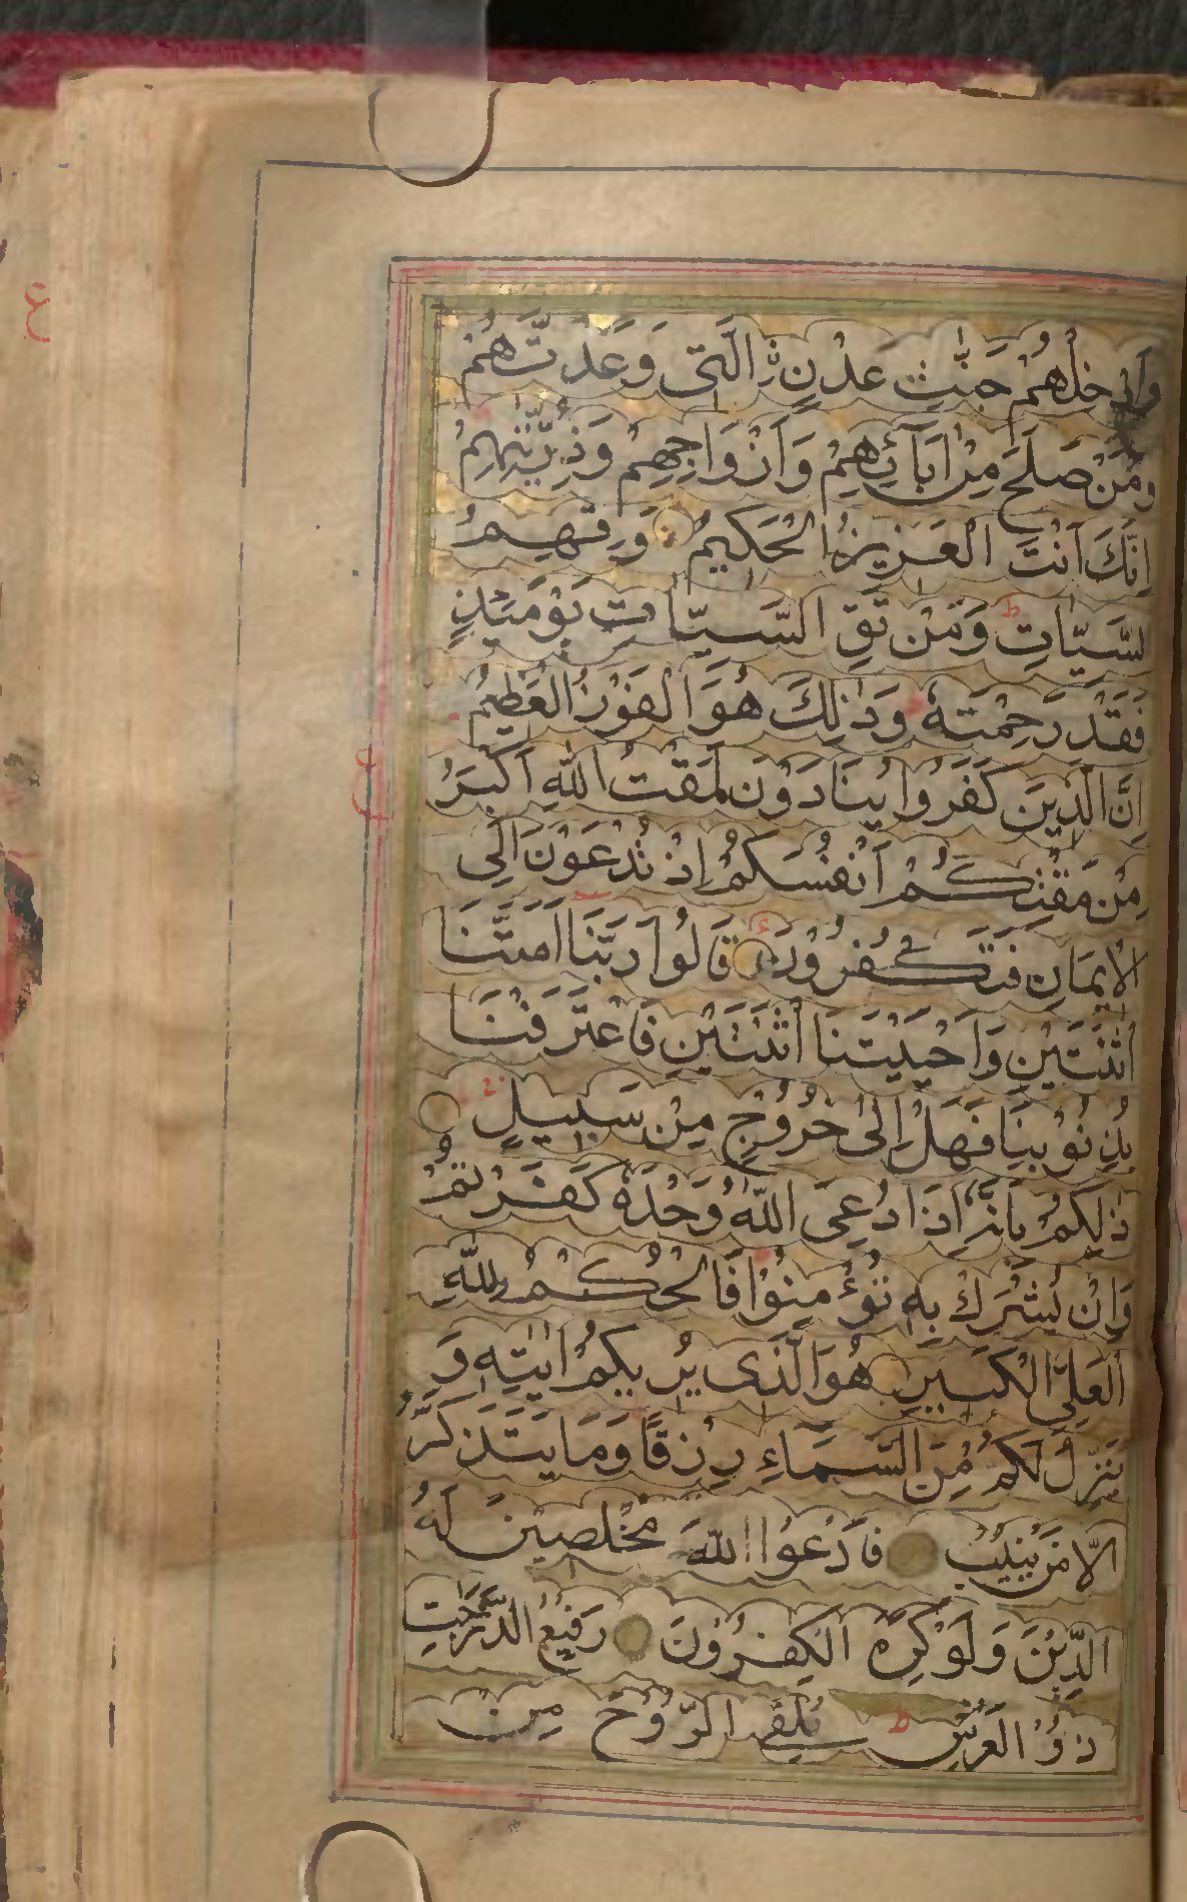 وَاَدْخِلْهُمْ جَنّٰتِ عَدْنِۣ الَّتِىْ وَعَدْتَّهُمْ
وَمَنْ صَلَحَ مِنْ اٰبَآئِهِمْ وَاَزْوَاجِهِمْ وَذُرِّيّٰتِهِمْ
اِنَّكَ اَنْتَ الْعَزِيْزُ الْحَكِيْمُ وَقِهِمُ
السَّيِّاٰتِ ط وَمَنْ تَقِ السَّيِّاٰتِ يَوْمَئِذٍ
فَقَدْ رَحِمْتَهٗ وَذٰلِكَ هُوَ الْفَوْزُ الْعَظِيْمُ
اِنَّ الَّذِيْنَ كَفَرُوْا يُنَادَوْنَ لَمَقْتُ اللّٰهِ اَكْبَرُ
مِنْ مَقْتِكُمْ اَنْفُسَكُمْ اِذْ تُدْعَوْنَ اِلَى
الْاِيْمَانِ فَتَكْفُرُوْنَ قَالُوْا رَبَّنَا اَمَتَّنَا
اثْنَتَيْنِ وَاَحْيَيْتَنَا اثْنَتَيْنِ فَاعْتَرَفْنَا
بِذُنُوْبِنَا فَهَلْ اِلٰى خُرُوْجٍ مِنْ سَبِيْلٍ
ذٰلِكُمْ بِاَنَّهٗ اِذَا دُعِىَ اللّٰهُ وَحْدَهٗ كَفَرْتُمْ
وَاِنْ يُشْرَكْ بِهٖ تُؤْمِنُوْا فَالْحُكْمُ لِلّٰهِ
الْعَلِىِّ الْكَبِيْرِ هُوَ الَّذِى يُرِيكُمْ اٰيٰتِهٖ وَ
يُنَزِّلُ لَكُمْ مِنَ السَّمَآءِ رِزْقًا وَمَا يَتَذَكَّرُ
اِلَّا مَنْ يُنِيْبُ فَادْعُوا اللّٰهَ مُخْلِصِيْنَ لَهُ
الدِّيْنَ وَلَوْ كَرِهَ الْكٰفِرُوْنَ رَفِيْعُ الدَّرَجٰتِ
ذُو الْعَرْشِ ط يُلْقِى الرُّوْحَ مِنْ